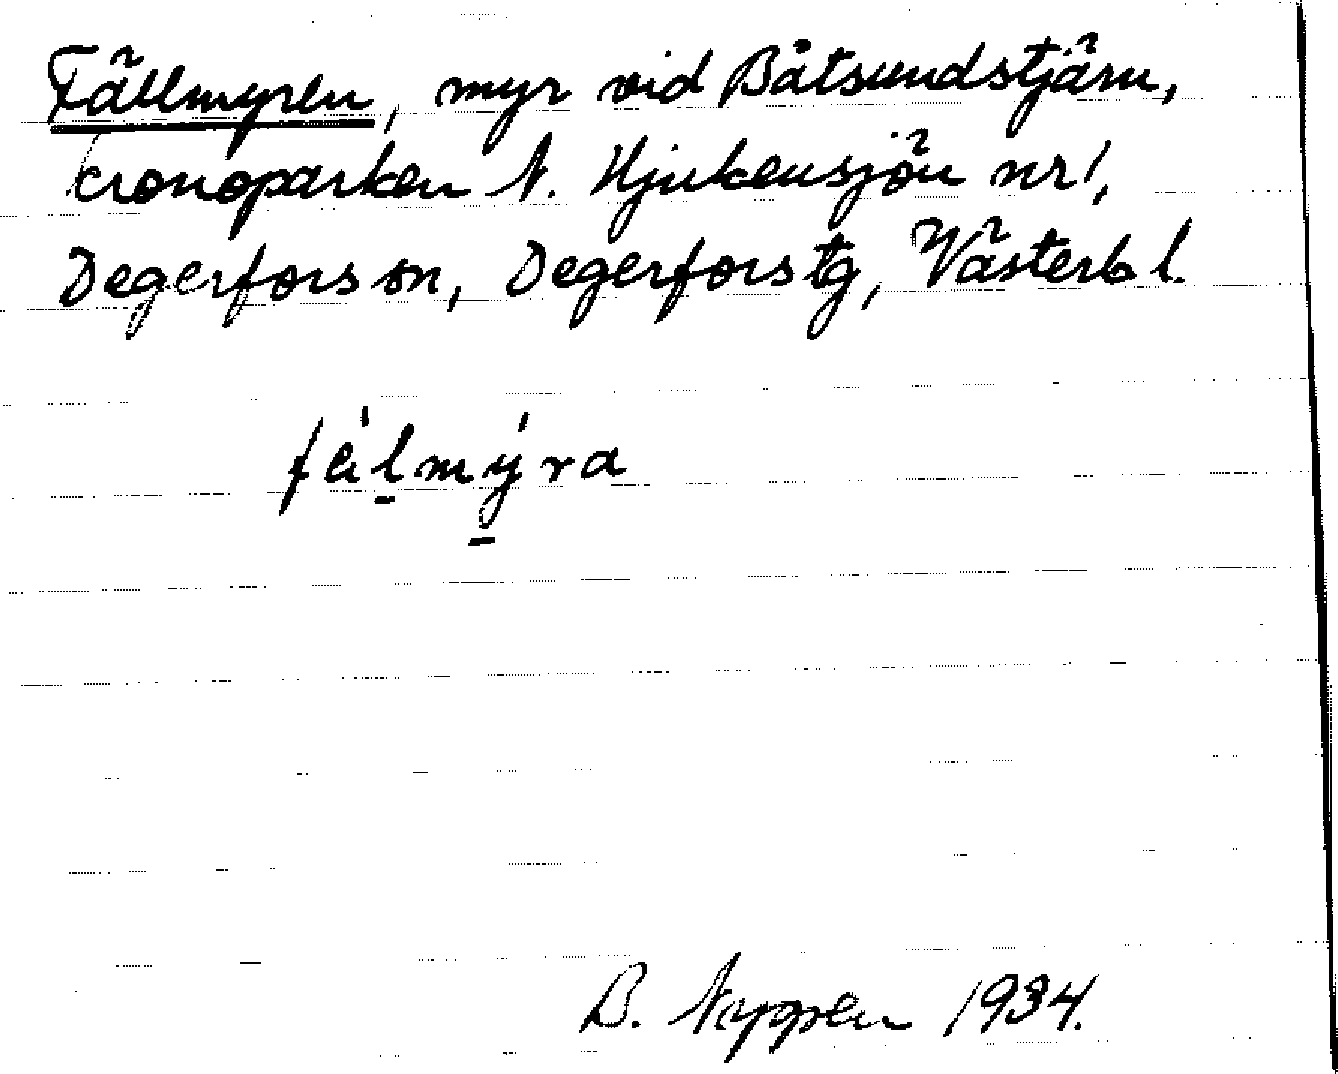 Fällmyren, myr vid Båtsundstjärn,
kronoparken N. Hjukensjön nr 1,
Degerfors sn, Degerfors tg, Västerb l.
fälmýra
B. Nappen 1934.